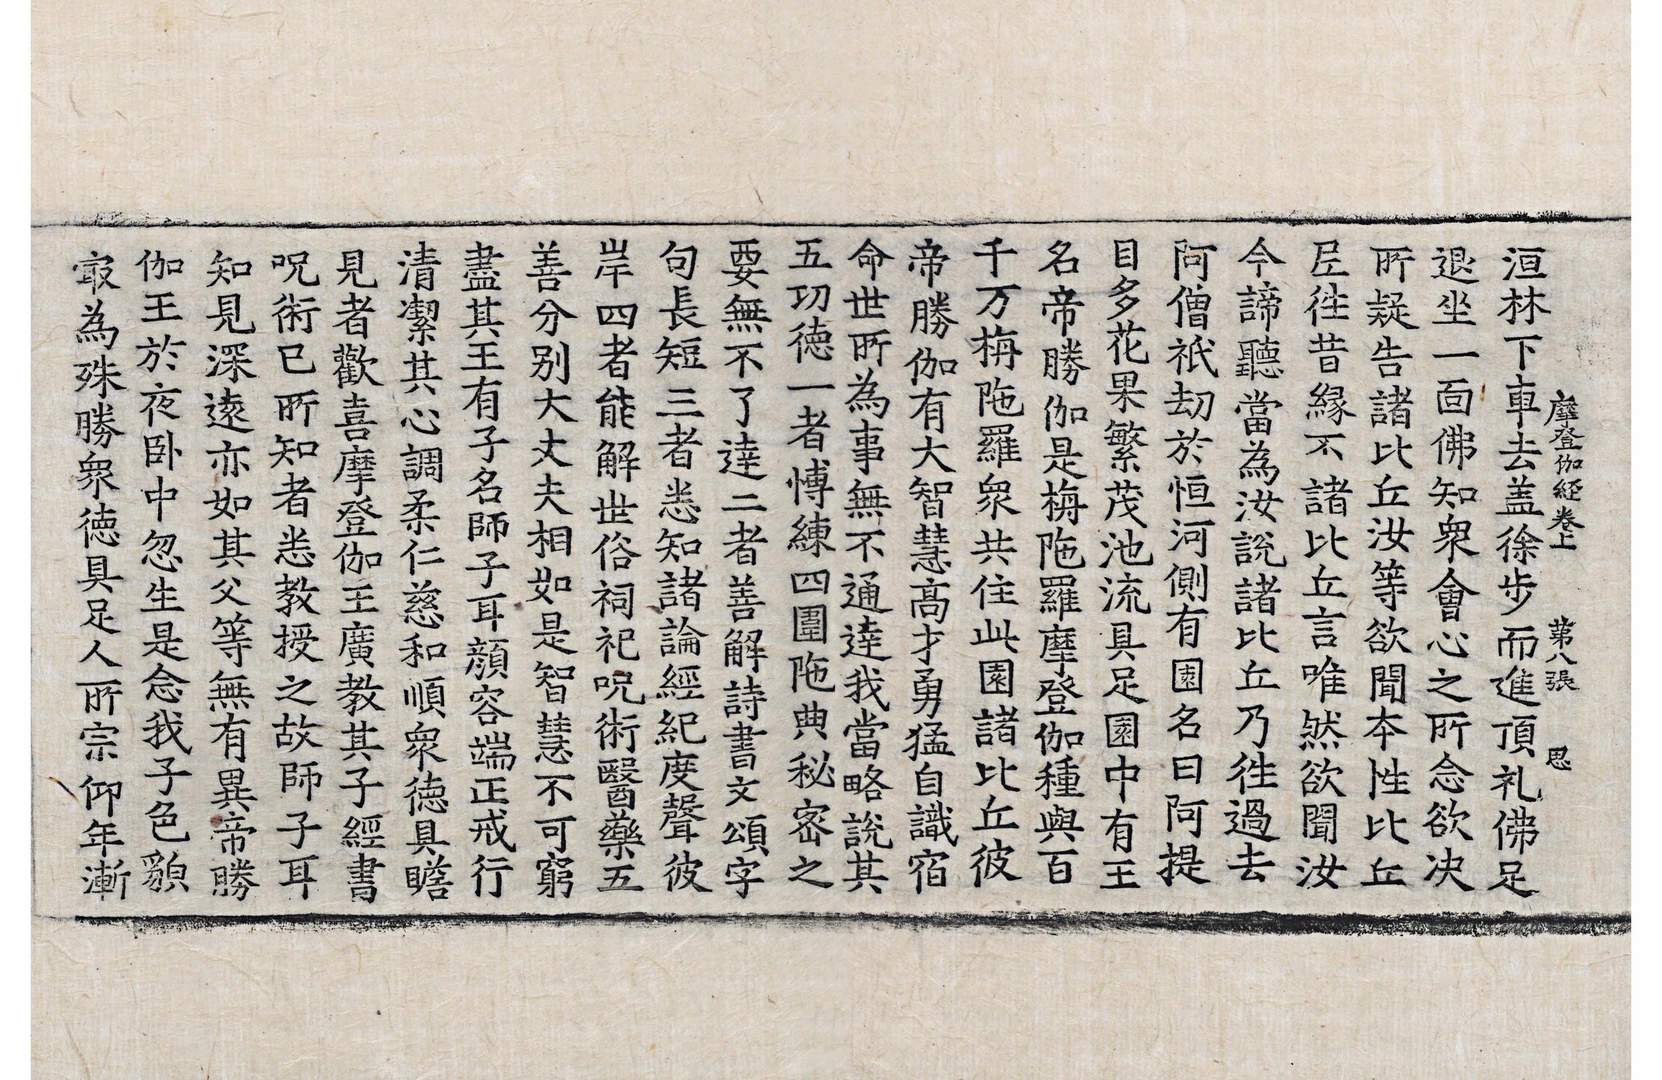 摩登伽経卷上　第八張　思
洹林下車去盖徐步而進頂礼佛足
退坐一面佛知衆會心之所念欲决
所疑告諸比丘汝等欲聞本性比丘
尼徃昔縁不諸比丘言唯然欲聞汝
今諦聽當為汝說諸比丘乃徃過去
阿僧祇劫於恒河側有園名曰阿提
目多花果繁茂池流具足園中有王
名帝勝伽是栴陁羅摩登伽種與百
千万栴陁羅衆共住此園諸比丘彼
帝勝伽有大智慧高才勇猛自識宿
命世所為事無不通達我當略說其
五功德一者博練四圍陁典秘宻之
要無不了達二者善解詩書文頌字
句長短三者悉知諸論經紀度聲彼
岸四者能解世俗祠祀呪術醫藥五
善分别大丈夫相如是智慧不可窮
盡其王有子名師子耳顔容端正戒行
清潔其心調柔仁慈和順衆德具瞻
見者歡喜摩登伽王廣教其子經書
呪術已所知者悉教授之故師子耳
知見深遠亦如其父等無有異帝勝
伽王於夜卧中忽生是念我子色貌
冣為殊勝衆德具足人所宗仰年漸